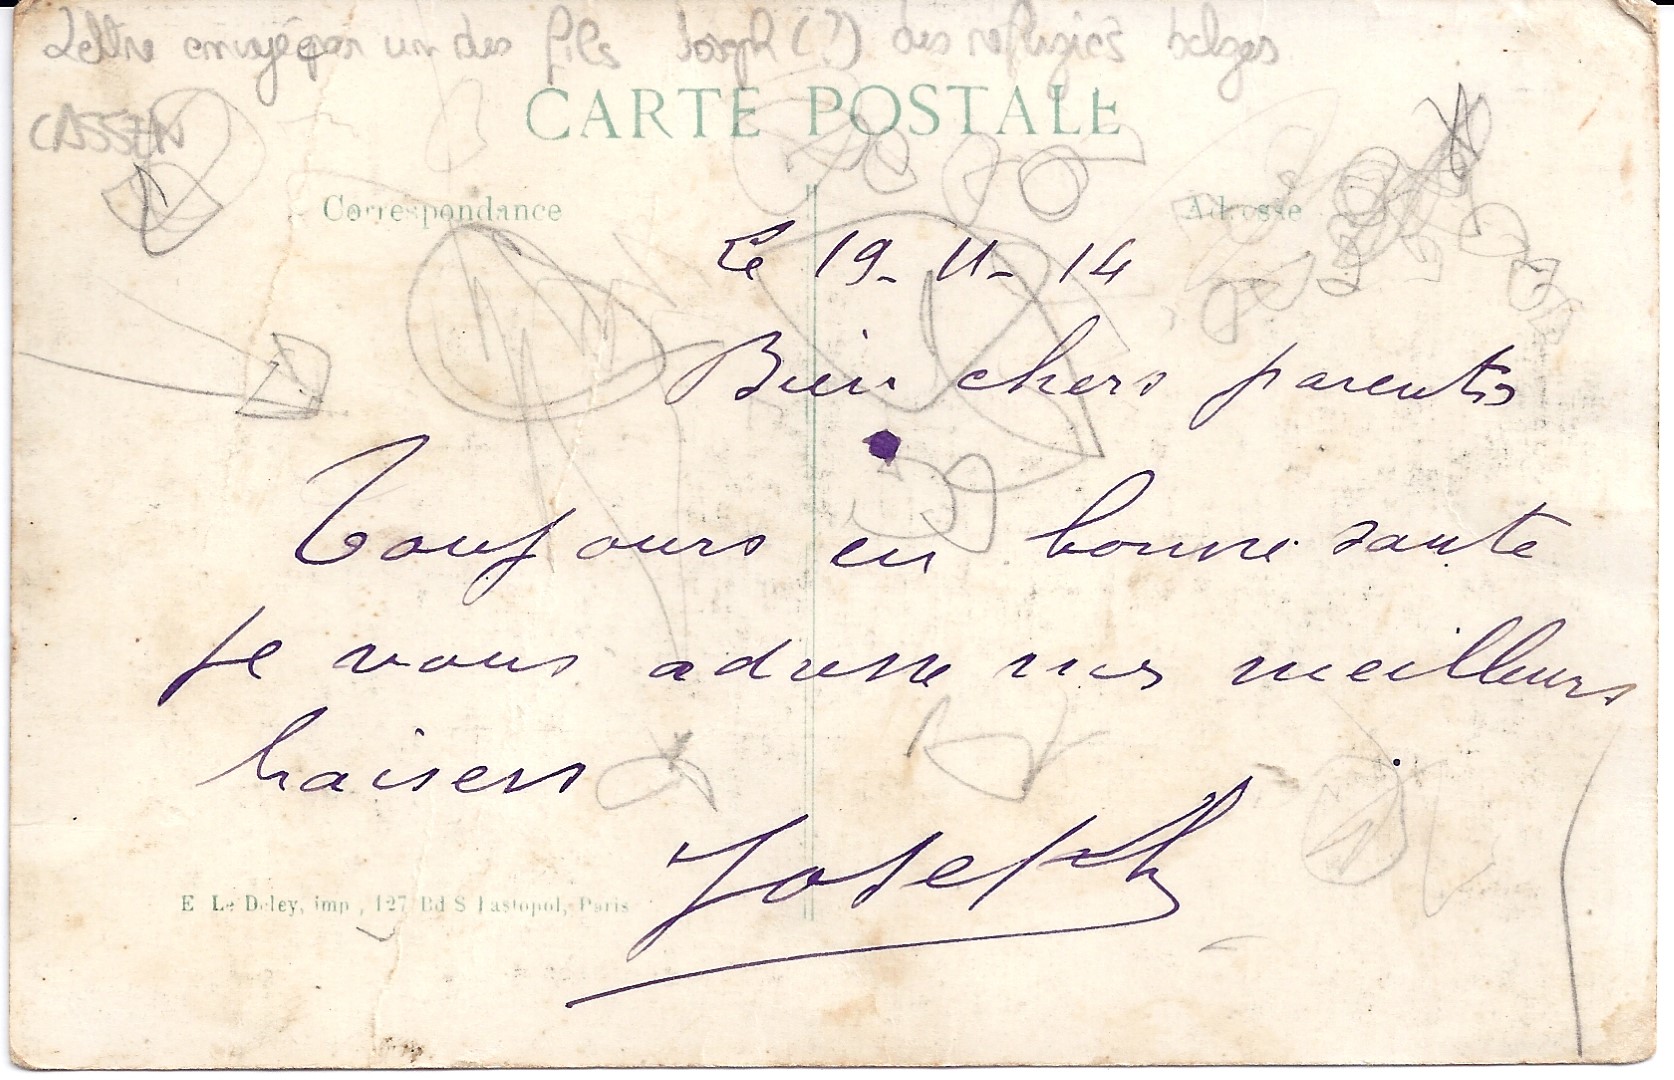 Lettre envoyée par un des fils Joseph (?) des réfugiés belges
CASSEN
CARTE POSTALE
Correspondance
Adresse
Le 19-11-14
Bien chers parents
Toujours en bonne sante
je vous adresse mes meilleurs
baisers
Joseph
E Le Deley, imp, 127 Bd Sébastopol, Paris